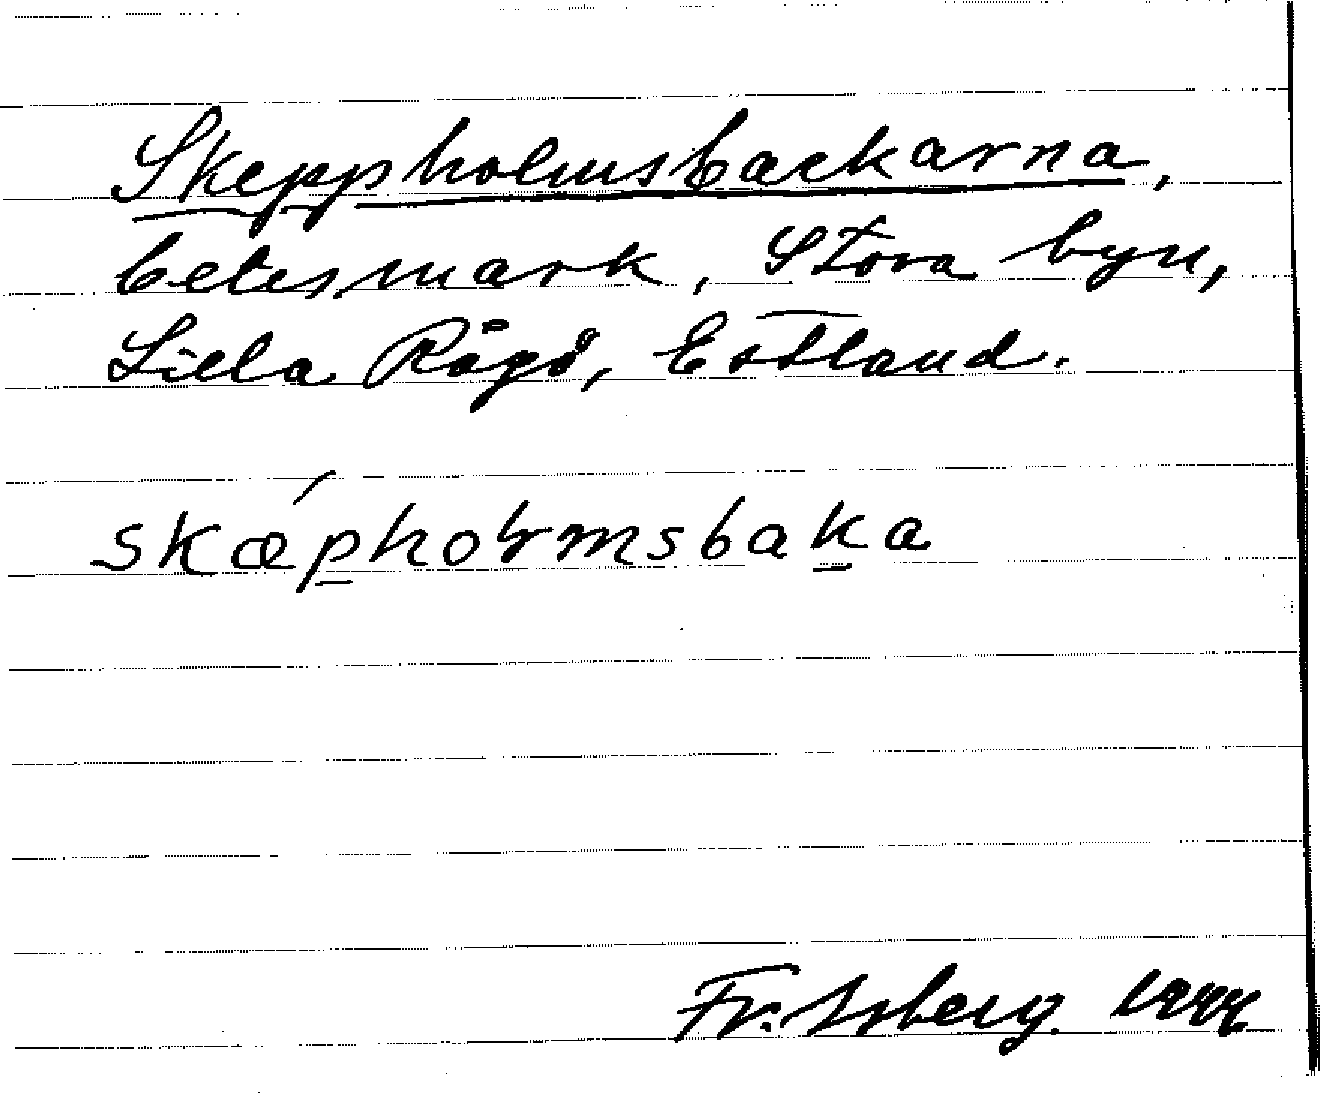 Skeppholmsbackarna,
betesmark, Stora byn,
Lilla Rågö, Estland.
skæ´pholmsbaka
Fr. Isberg. 1944